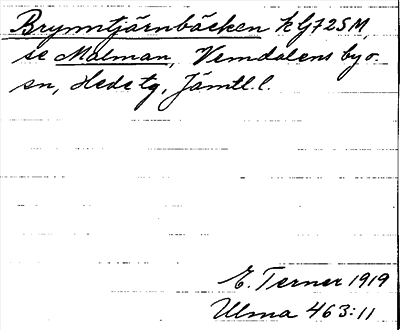 Brynntjärnbäcken k G72SM,
se Malman, Vemdalens by o.
sn, Hede tg, Jämtl. l.
E. Terner 1919
Ulma 463:11